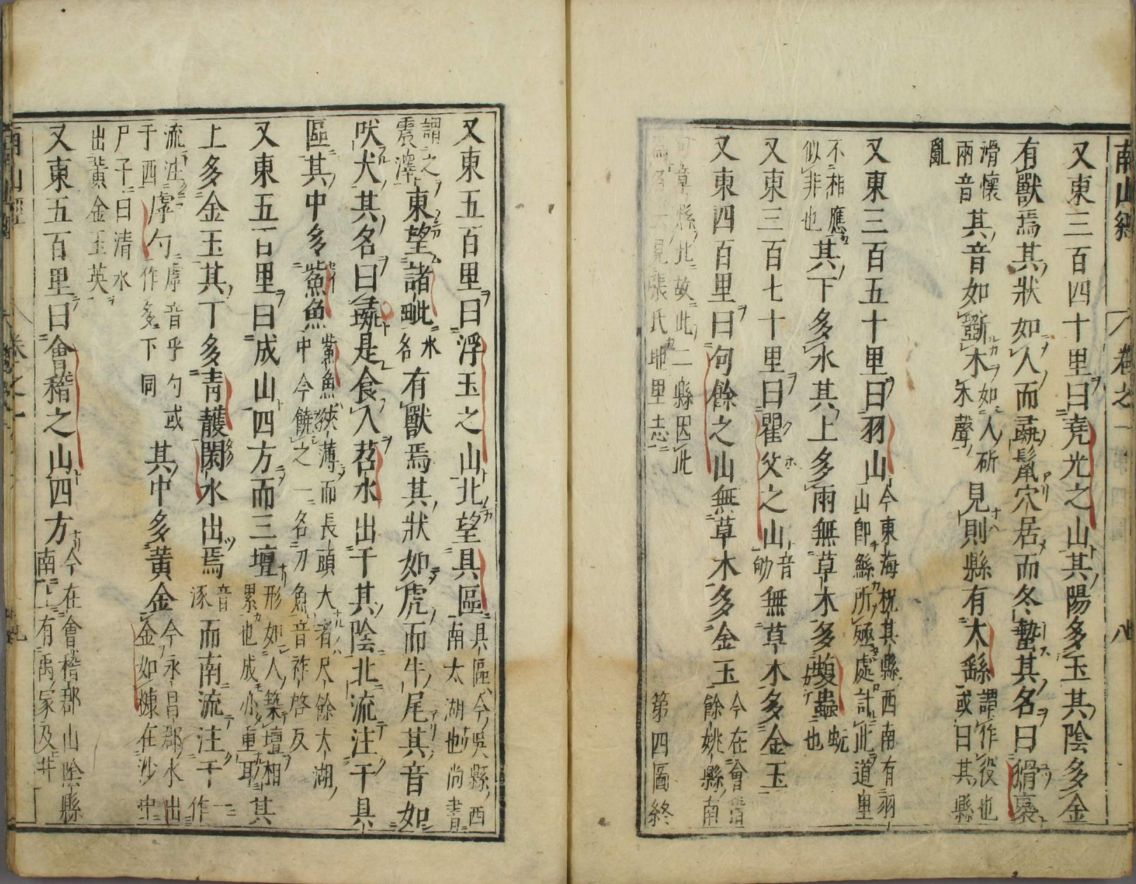 南山經 卷之一 八
又東三百四十里曰堯光之山其陽多玉其陰多金
有獸焉其狀如人而彘鬣穴居而冬蟄其名曰猾褢
滑懷兩音其音如斲木如人斫木聲見則縣有大繇謂作役也或曰其縣
亂
又東三百五十里曰羽山今東海祝其縣西南有羽山即鯀所殛處計此道里
不相應似非也其下多水其上多雨無草木多蝮蟲蚖也
又東三百七十里曰瞿父之山音劬無草木多金玉
又東四百里曰句餘之山無草木多金玉今在會稽餘姚縣南
句章縣北故此二縣因此為名云見張氏地里志 第四圖終
又東五百里曰浮玉之山北望具區具區今吳縣西南太湖也尚書
謂之震澤東望諸𣬉水名有獸焉其狀如虎而牛尾其音如
吠犬其名曰彘是食人苕水出于其陰北流注于具
區其中多鮆魚鮆魚狹薄而長頭大者尺餘太湖中今饒之一名刀魚音祚啓反
又東五百里曰成山四方而三壇形如人築壇相累也成亦重耳其
上多金玉其下多青雘閎水出焉音涿而南流注于一作
流注于西虖勺虖音乎勺或作多下同其中多黃金今永昌郡水出金如糠在沙中
尸子曰清水出黃金玉英
又東五百里曰會稽之山四方今在會稽郡山陰縣南上有禹冢及井
南山經 卷之一 九